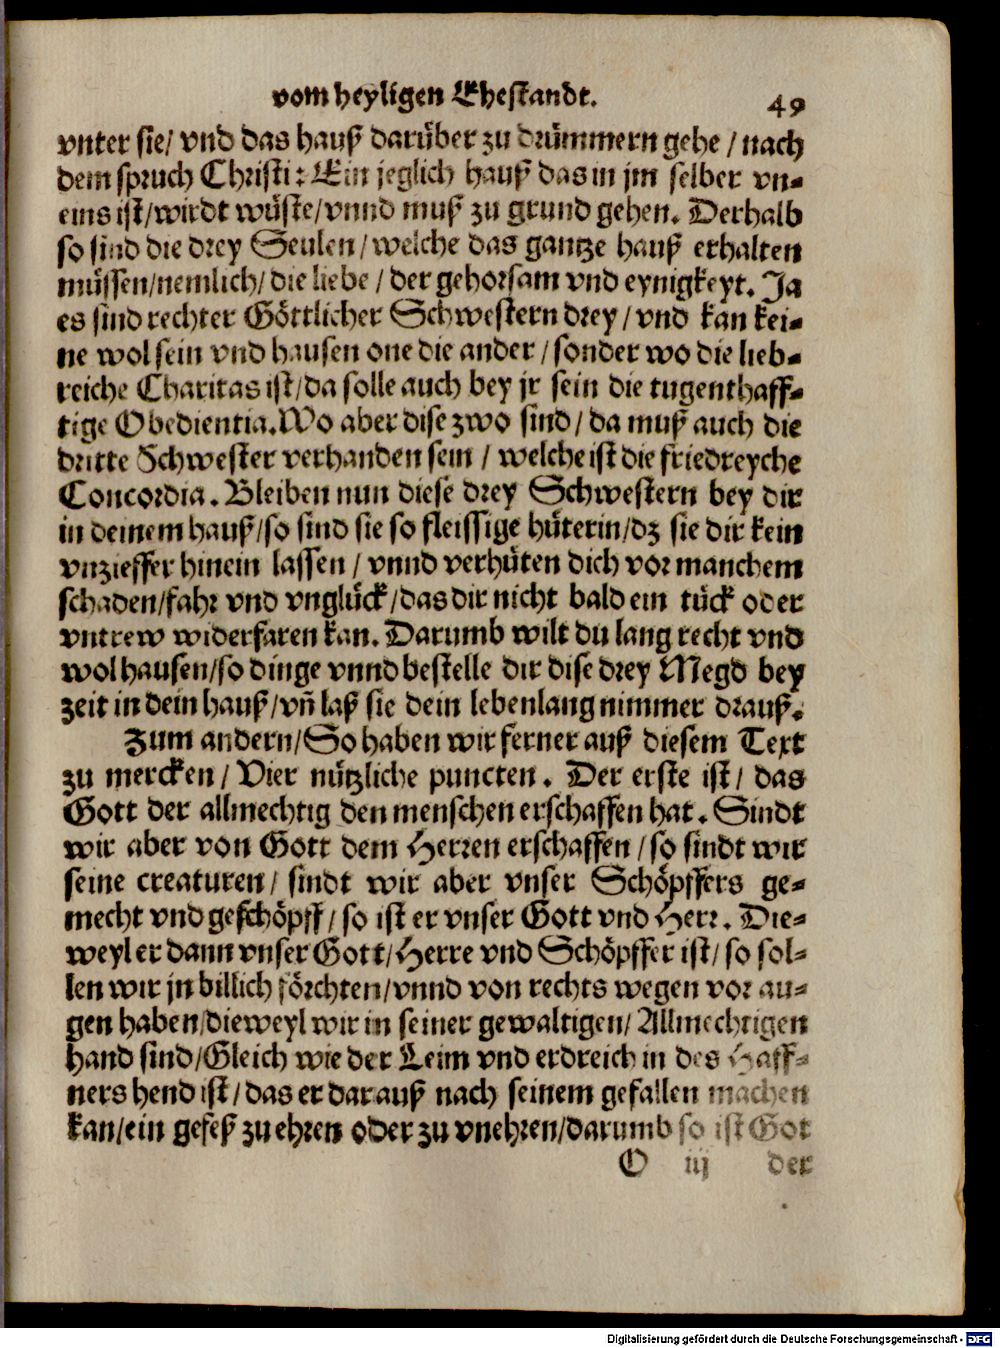 vom heyligen Ehestandt.
49
vnter sie/ vnd das hauß darüber zu drümmern gehe / nach
dem spruch Christi: Ein jeglich hauß das in jm selber vn-
eins ist/wirdt wüste/vnnd muß zu grund gehen. Derhalb
so sind die drey Seulen/welche das gantze hauß erhalten
müssen/nemlich/die liebe / der gehorsam vnd eynigkeyt. Ja
es sind rechter Göttlicher Schwestern drey/vnd kan kei-
ne wol sein vnd hausen one die ander / sonder wo die lieb-
reiche Charitas ist/da solle auch bey jr sein die tugenthaff-
tige Obedientia. Wo aber dise zwo sind/ da muß auch die
dritte Schwester verhanden sein / welche ist die friedreyche
Concordia. Bleiben nun diese drey Schwestern bey dir
in deinem hauß/so sind sie so fleissige hüterin/dz sie dir kein
vnzieffer hinein lassen / vnnd verhüten dich vor manchem
schaden/fahr vnd vnglück/das dir nicht bald ein tück oder
vntrew widerfaren kan. Darumb wilt du lang recht vnd
wol hausen/so dinge vnnd bestelle dir dise drey Megd bey
zeit in dein hauß/vñ laß sie dein lebenlang nimmer drauß.
Zum andern/So haben wir ferner auß diesem Text
zu mercken/ Vier nützliche puncten. Der erste ist/ das
Gott der allmechtig den menschen erschaffen hat. Sindt
wir aber von Gott dem Herren erschaffen / so sindt wir
seine creaturen/ sindt wir aber vnser Schöpffers ge-
mecht vnd geschöpff/so ist er vnser Gott vnd Herr. Die-
weyl er dann vnser Gott/Herre vnd Schöpffer ist/ so sol-
len wir jn billich förchten/vnnd von rechts wegen vor au-
gen haben/dieweyl wir in seiner gewaltigen/ Allmechtigen
hand sind/Gleich wie der Leim vnd erdreich in des Haff-
ners hend ist/das er darauß nach seinem gefallen machen
kan/ein gefeß zu ehren oder zu vnehren/darumb so ist Got
O iij der
Digitalisierung gefördert durch die Deutsche Forschungsgemeinschaft - DFG